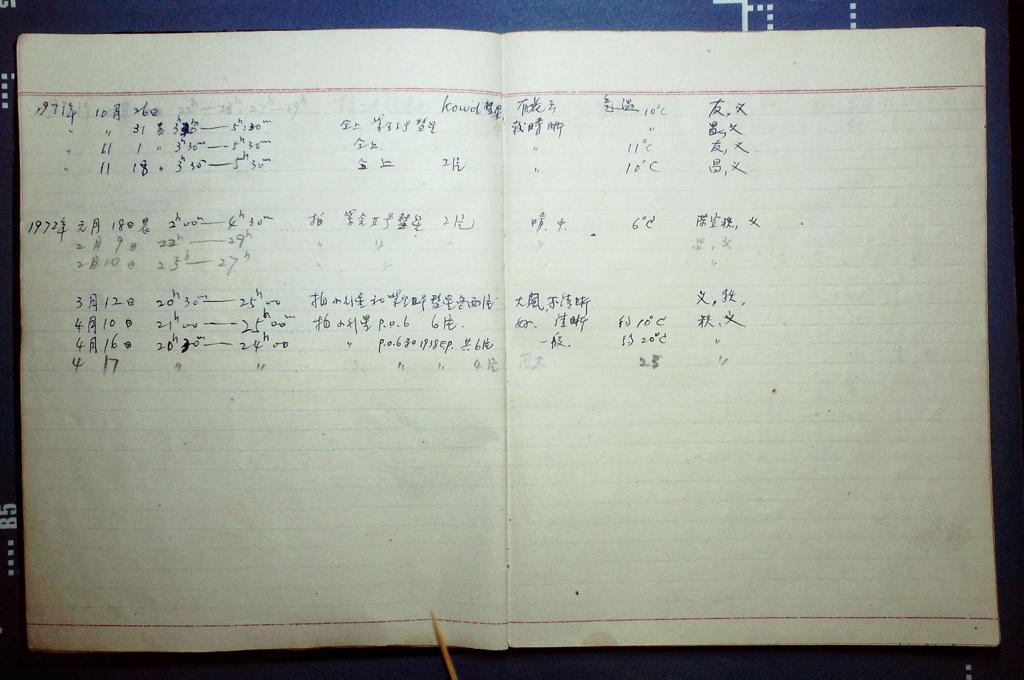 1971年 10月 26日 22ʰ—28ʰ 23ʰ—29ʰ Kowd 彗星 有薄云 气温 10°C 友,义
" " 31 晨 3ʰ30—5ʰ30ᵐ 仝上 紫金I号彗星 晴晰 " 昌,义
" 11 1 " 3ʰ30ᵐ—5ʰ30ᵐ 仝上 " 11°C 友,义
" 11 18 " 3ʰ30ᵐ—5ʰ30ᵐ 仝上 2片 " 10°C 昌,义
1972年 元月 18日晨 2ʰ00ᵐ—4ʰ30ᵐ 拍 紫金II号彗星 2片 晴,中 6°C 义
2月 9日 22ʰ—29ʰ " " 义
2月10日 23ʰ—27ʰ " "
3月12日 20ʰ30ᵐ—25ʰ00 拍小行星和紫金II号彗星各两片 大风,不清晰 义,秩,
4月10日 21ʰ00—25ʰ00ᵐ 拍小行星 P.0.6 6片. 好. 清晰 约10°C 秩,义
4月16日 20ʰ30ᵐ—24ʰ00 " P.0.6和1938EP. 共6片 一般. 约20°C "
4 17 " " " " 4片 23 "
B5